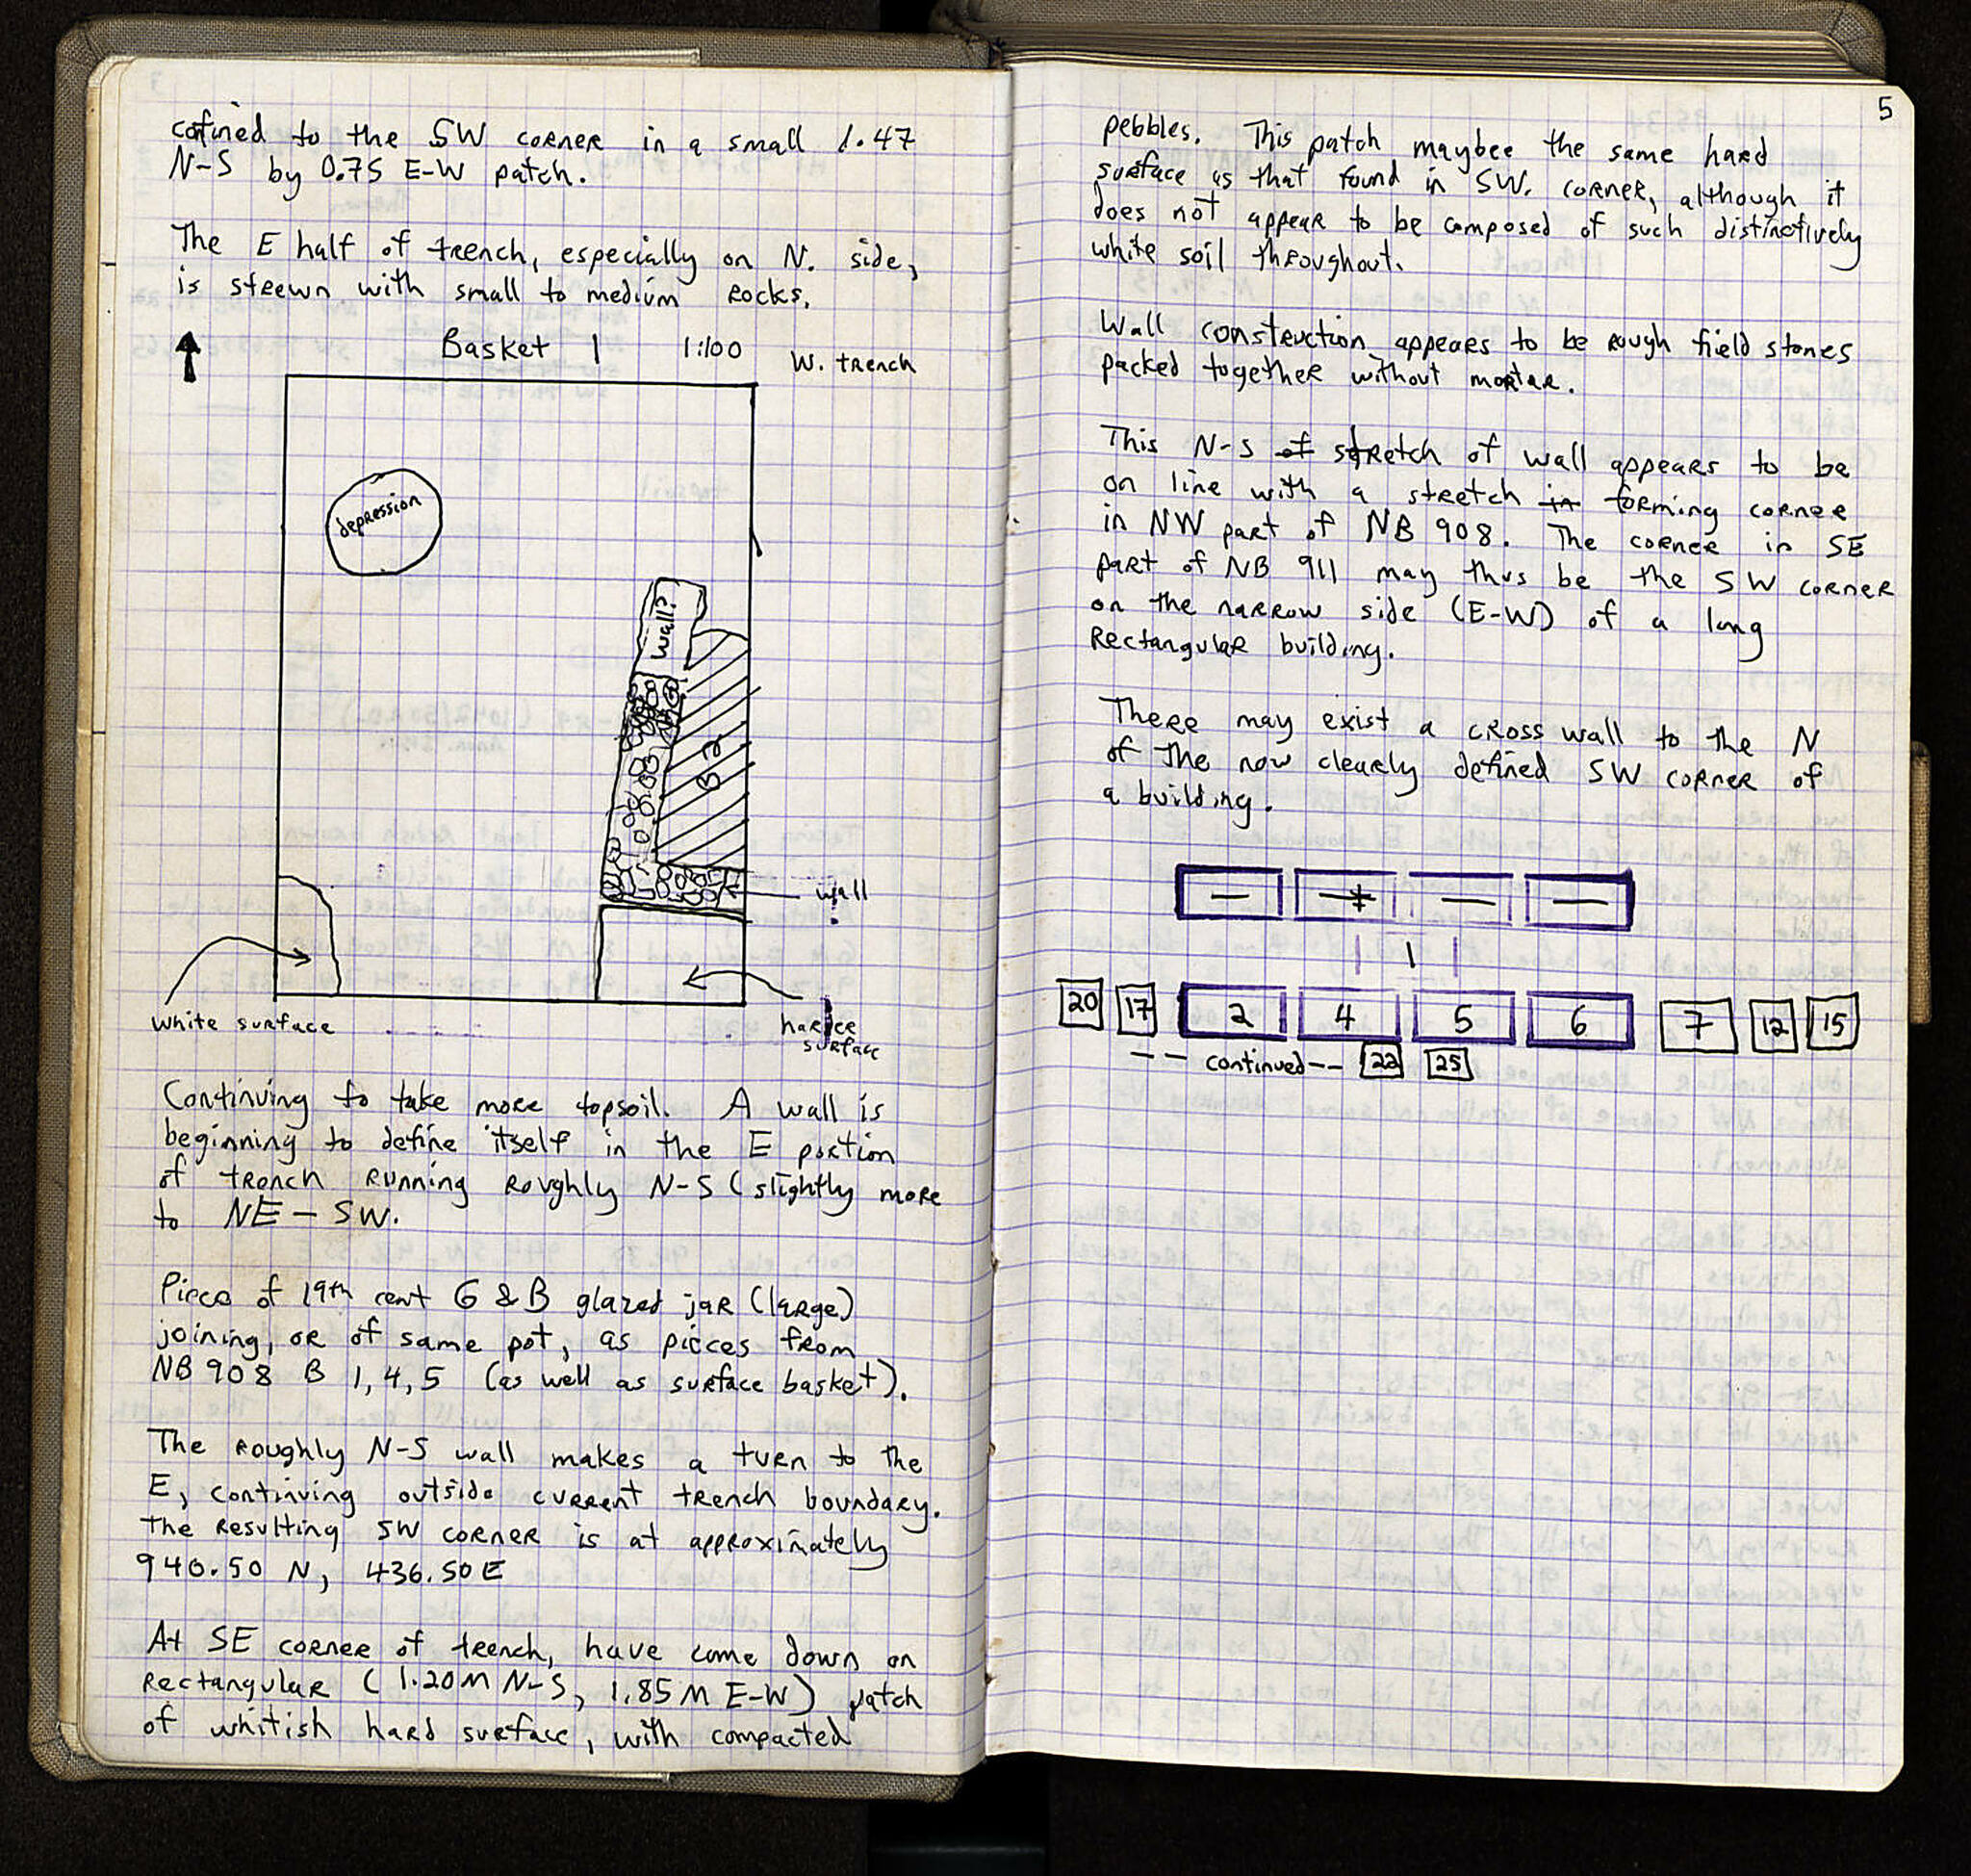 confined to the SW corner in a small 1.47
N-S by 0.75 E-W patch.
The E half of trench, especially on N. side,
is strewn with small to medium rocks.
Basket 1 1:100 W. trench
depression
wall?
B2
wall
white surface
harder
surface
Continuing to take more topsoil. A wall is
beginning to define itself in the E portion
of trench running roughly N-S (slightly more
to NE - SW.
Piece of 19th cent G & B glazed jar (large)
joining, or of same pot, as pieces from
NB 908 B 1, 4, 5 (as well as surface basket).
The roughly N-S wall makes a turn to the
E, continuing outside current trench boundary.
The resulting SW corner is at approximately
940.50 N, 436.50 E
At SE corner of trench, have come down on
rectangular (1.20 M N-S, 1.85 M E-W) patch
of whitish hard surface, with compacted
5
pebbles. This patch maybee the same hard
surface as that found in SW. corner, although it
does not appear to be composed of such distinctively
white soil throughout.
Wall construction appears to be rough field stones
packed together without mortar.
This N-S of stretch of wall appears to be
on line with a stretch in forming corner
in NW part of NB 908. The corner in SE
part of NB 911 may thus be the SW corner
on the narrow side (E-W) of a long
rectangular building.
There may exist a cross wall to the N
of the now clearly defined SW corner of
a building.
1
20 17 2 4 5 6 7 12 15
-- continued -- 22 25